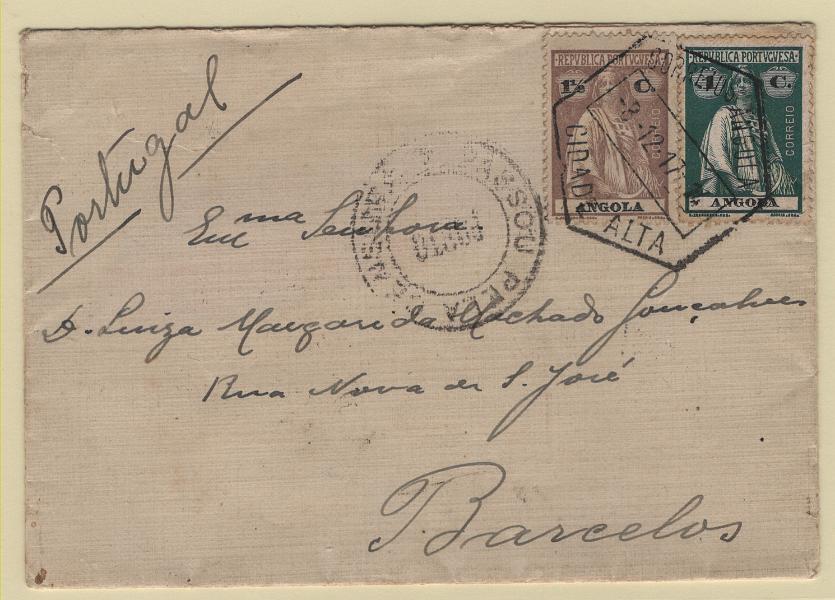 REPUBLICA PORTUGUESA
1½ C.
CORREIO
ANGOLA
REPUBLICA PORTUGUESA
4 C.
CORREIO
ANGOLA
CIDADE ALTA
PASSOU PELA
Portugal
Exma Senhora
D. Luiza Margarida Machado Gonçalves
Rua Nova de S. José
Barcelos